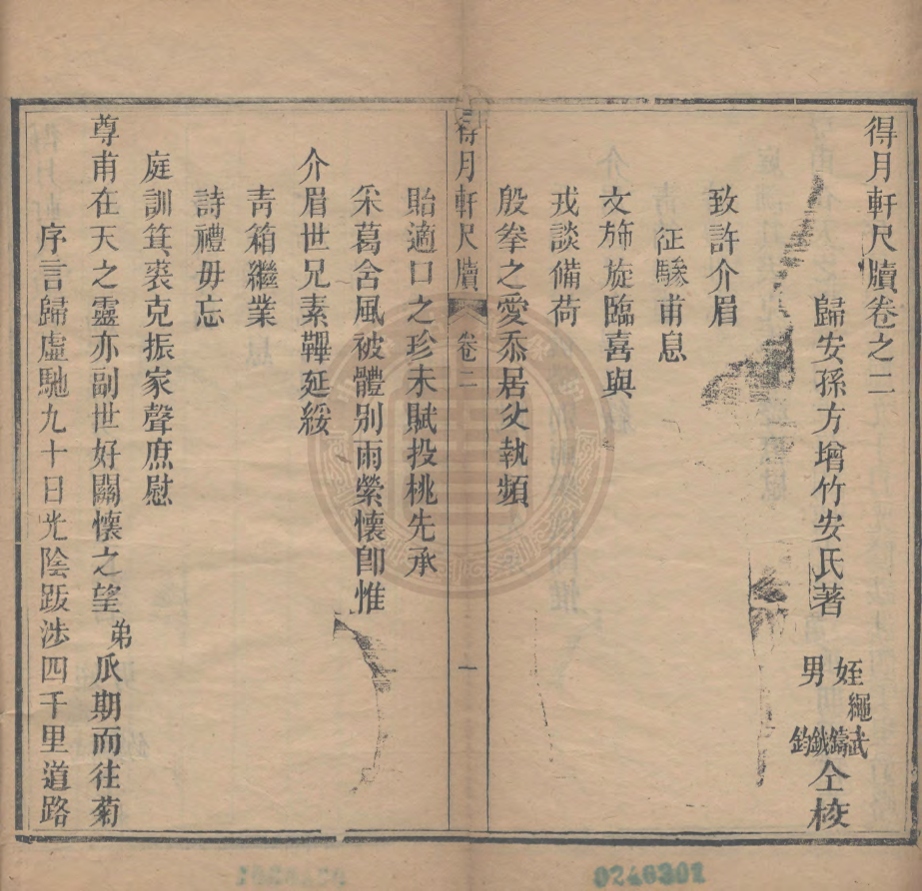 得月軒尺牘卷之二
歸安孫方增竹安氏著
姪繩武
男鑄鉞鈞
仝校
致許介眉
征驂甫息
文斾旋臨喜與
戎談備荷
殷拳之愛忝居父執頻
得月軒尺牘 卷二 一
貽適口之珍未賦投桃先承
采葛舍風被體別雨縈懷卽惟
介眉世兄素鞸延綏
靑箱繼業
詩禮毋忘
庭訓箕裘克振家聲庶慰
尊甫在天之靈亦副世好關懷之望弟瓜期而往菊
序言歸虛馳九十日光陰跋涉四千里道路
0246301